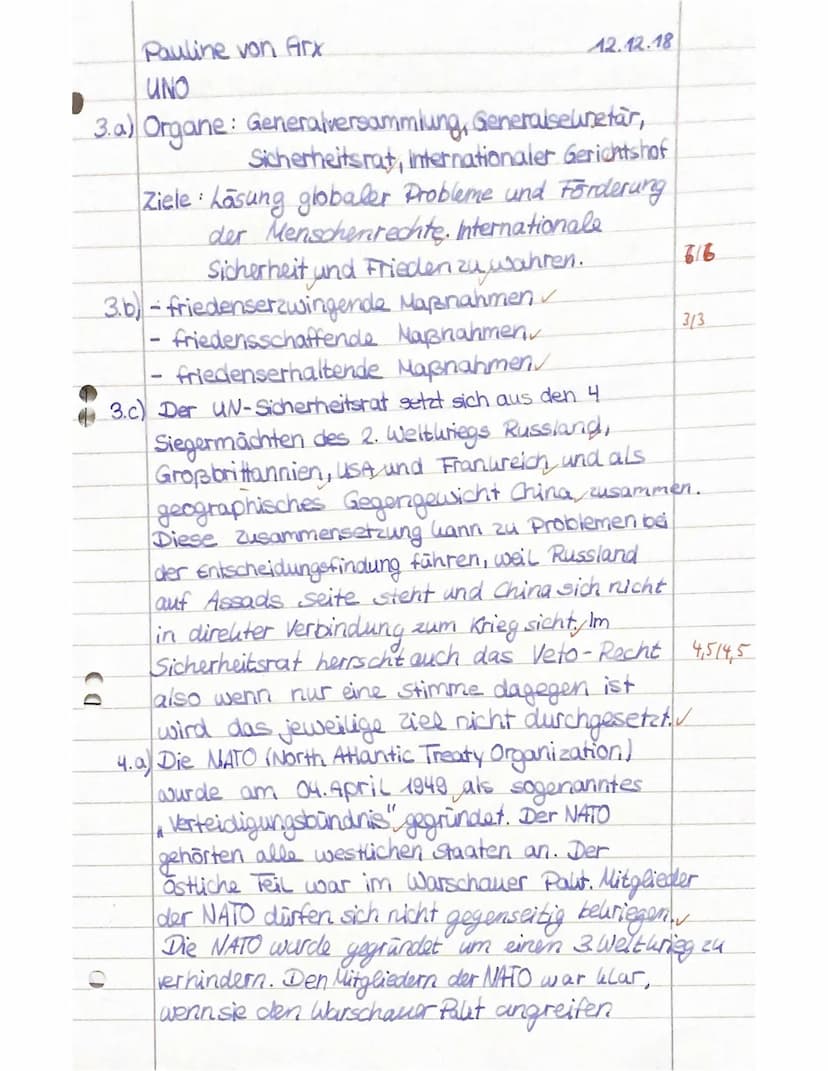 Pauline von Arx 12.12.18
UNO
3.a) Organe: Generalversammlung, Generalsekretär,
Sicherheitsrat, Internationaler Gerichtshof
Ziele: Lösung globaler Probleme und Förderung
der Menschenrechte. Internationale
Sicherheit und Frieden zu wahren. 6/6
3.b) - friedenserzwingende Maßnahmen ✓
- friedensschaffende Maßnahmen ✓ 3/3
- friedenserhaltende Maßnahmen ✓
3.c) Der UN-Sicherheitsrat setzt sich aus den 4
Siegermächten des 2. Weltkriegs Russland,
Großbrittannien, USA und Frankreich und als
geographisches Gegengewicht China zusammen.
Diese Zusammensetzung kann zu Problemen bei
der Entscheidungsfindung führen, weil Russland
auf Assads Seite steht und China sich nicht
in direkter Verbindung zum Krieg sieht. Im
Sicherheitsrat herrscht auch das Veto-Recht 4,5/4,5
also wenn nur eine Stimme dagegen ist
wird das jeweilige Ziel nicht durchgesetzt. ✓
4.a) Die NATO (North Atlantic Treaty Organization)
wurde am 04. April 1949 als sogenanntes
„Verteidigungsbündnis" gegründet. Der NATO
gehörten alle westlichen Staaten an. Der
Östliche Teil war im Warschauer Pakt. Mitglieder
der NATO dürfen sich nicht gegenseitig bekriegen. ✓
Die NATO wurde gegründet um einen 3. Weltkrieg zu
verhindern. Den Mitgliedern der NATO war klar,
wenn sie den Warschauer Pakt angreifen